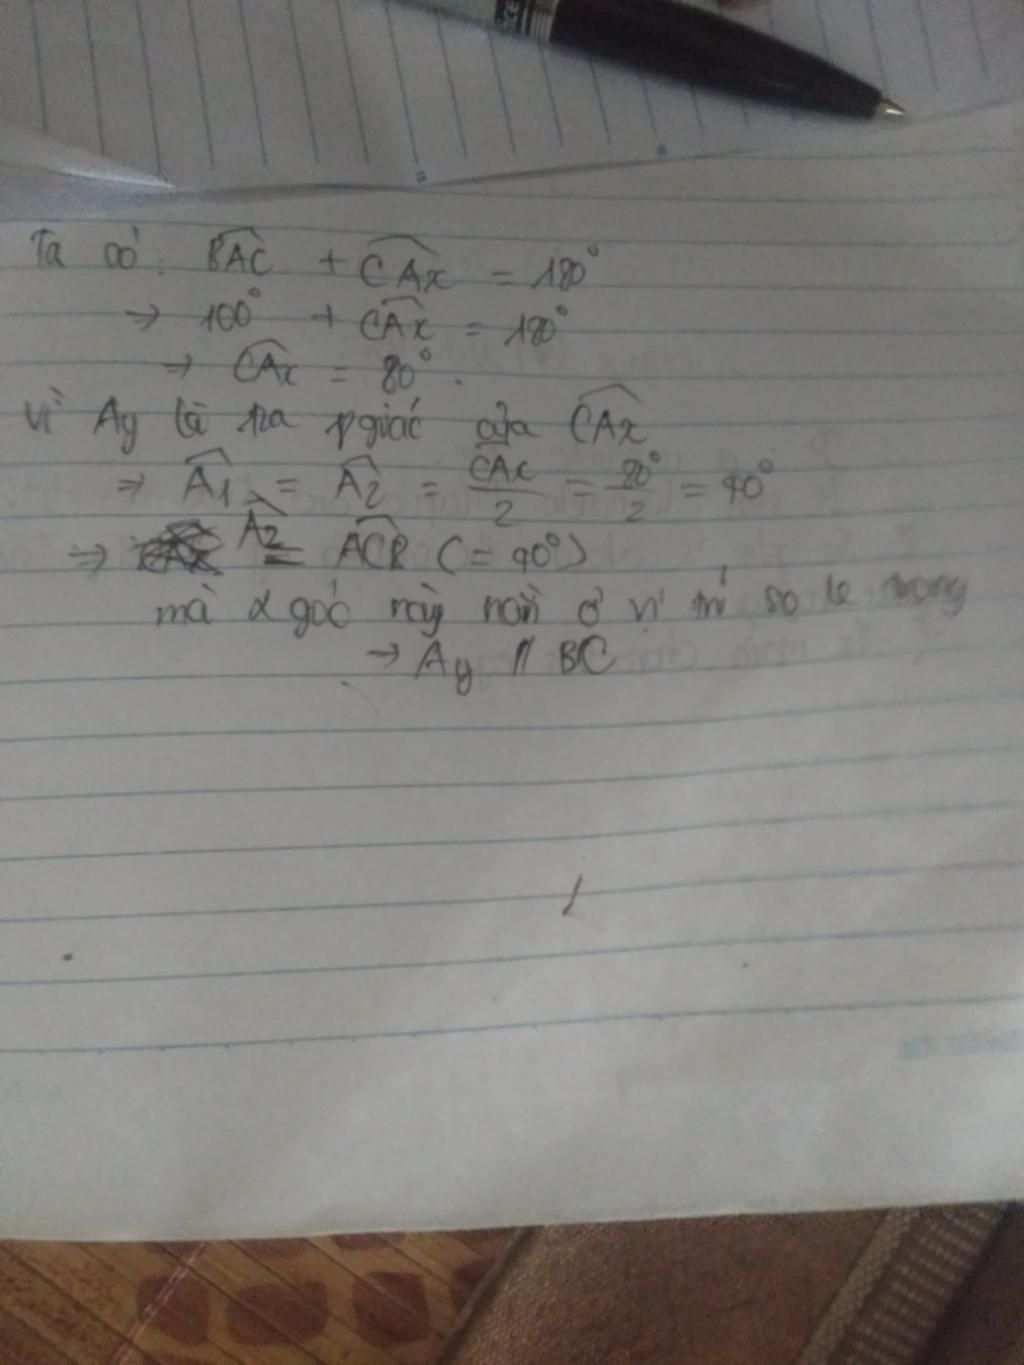 Ta có: BAC + CAx = 180°
→ 100° + CAx = 180°
→ CAx = 80°.
Vì Ay là tia pgiác của CAx
⇒ A1 = A2 = CAx/2 = 80°/2 = 40°
⇒ A2 = ACB (= 40°)
mà 2 góc này nằm ở vị trí so le trong
→ Ay // BC